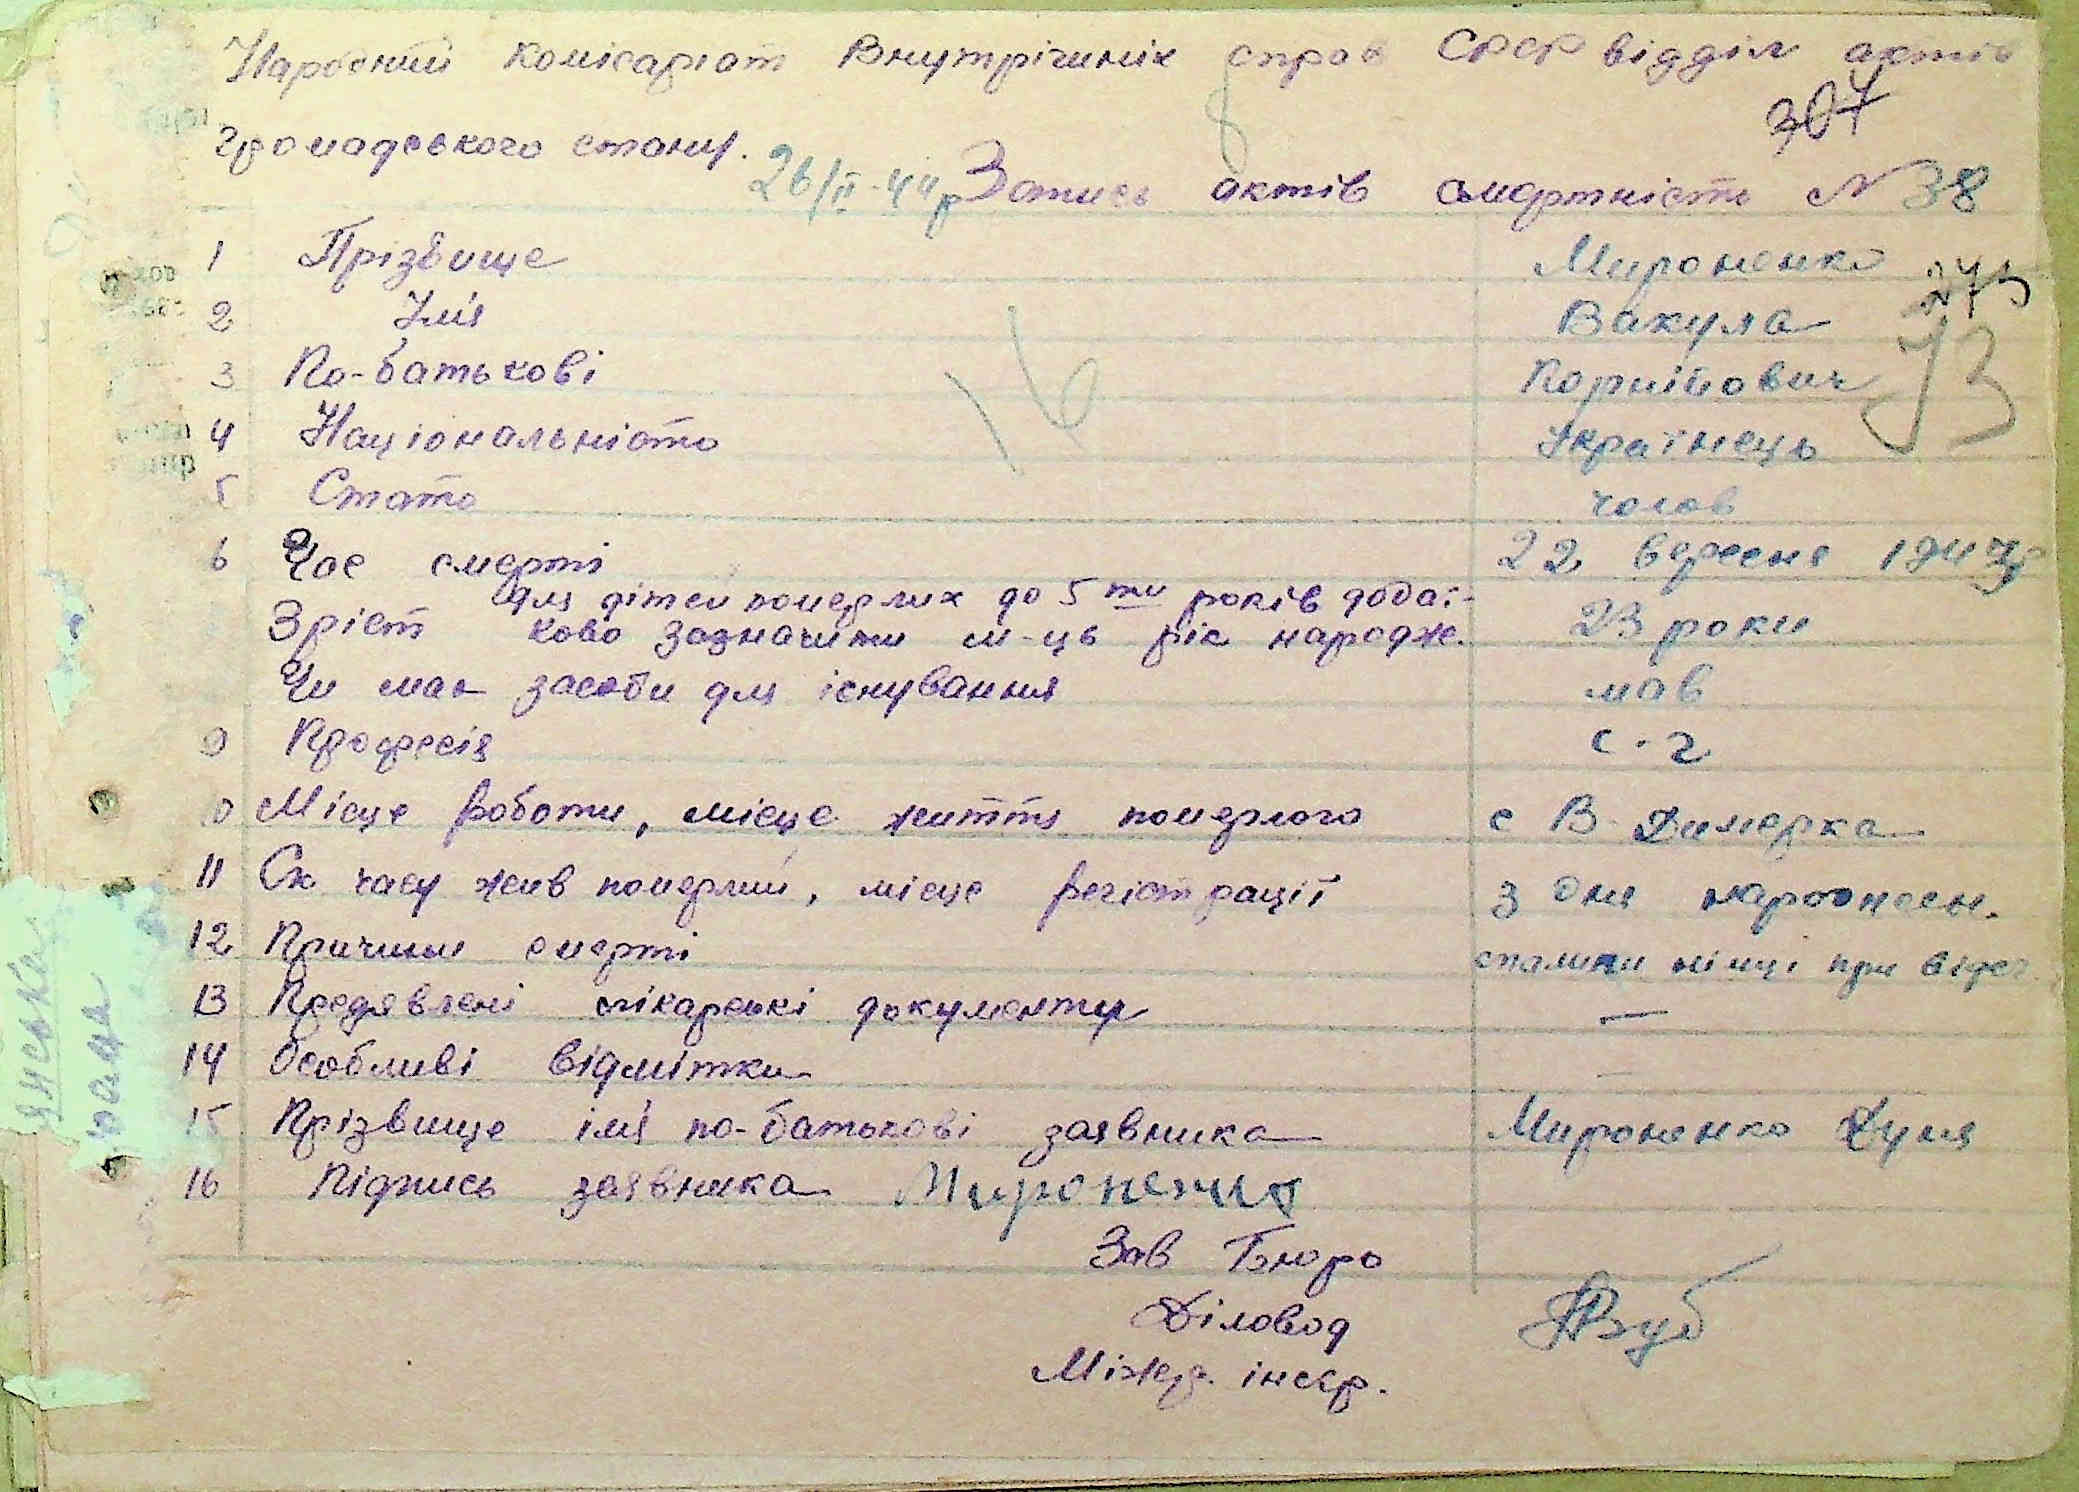 Народний Комісаріат Внутрішніх справ СРСР відділ актів
307
громадського стану.
26/II-44р Запись актів смертність N 38
1 Прізвище Мироненко
275
2 Імʼя Вакула
3 По-батькові Корнійович
73
16
4 Національність Українець
5 Стать чолов
6 Час смерті 22 вересня 1943р
для дітей померлих до 5ти років додат-
Зріст ково зазначити м-ць рік народж. 23 роки
Чи мав засоби для існування мав
9 Професія с.г
10 Місце роботи, місце життя померлого с В-Димерка
11 Ск часу жив померлий, місце регістрації з дня народжен.
12 Причини смерті спалили німці при відст
13 Предявлені лікарські документи —
14 Особливі відмітки —
15 Прізвище імʼя по-батькові заявника Мироненко Дуня
16 Підпись заявника Мироненко
Зав Бюро
Діловод
Міжр. інспр.